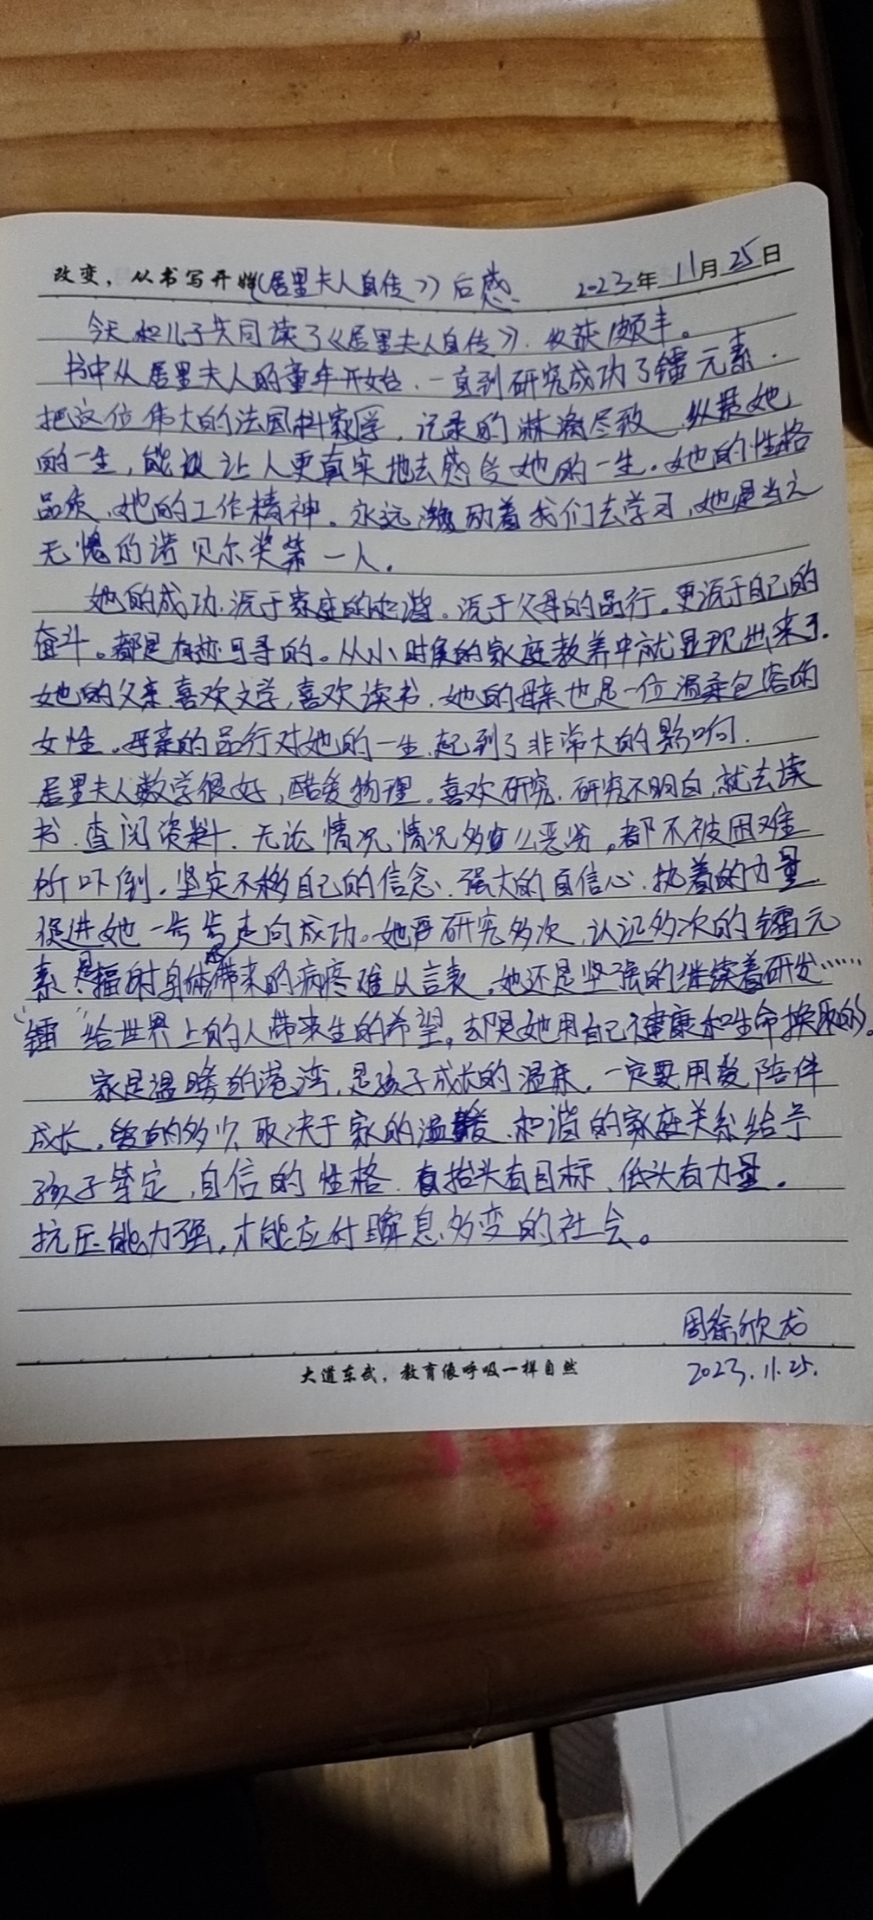 改变，从书写开始《居里夫人自传》后感 2023年11月25日
今天和儿子共同读了《居里夫人自传》.收获颇丰。
书中从居里夫人的童年开始.一直到研究成功了镭元素.
把这位伟大的法国科家学,记录的淋漓尽致,纵是她
的一生,能让人更真实地去感受她的一生.她的性格
品质,她的工作精神.永远激励着我们去学习,她是当之
无愧的诺贝尔奖第一人.
她的成功.源于家庭的和谐.源于父母的品行.更源于自己的
奋斗。都是有迹可寻的。从小时侯的家庭教养中就显现出来了.
她的父亲喜欢文学,喜欢读书.她的母亲也是一位温柔包容的
女性.母亲的品行对她的一生.起到了非常大的影响.
居里夫人数学很好,酷爱物理.喜欢研究.研究不明白,就去读
书.查阅资料.无论情况情况多么恶劣,都不被困难
所吓倒.坚定不移自己的信念、强大的自信心.执着的力量.
促进她一步步走向成功.她研究多次,认证多次的镭元
素.辐射身体带来的病疼难以言表.她还是坚强的继续着研发……
"镭"给世界上的人带来生的希望,却是她用自己健康和生命换取的。
家是温暖的港湾.是孩子成长的温床.一定要用爱陪伴
成长.爱的多少取决于家的温暖.和谐的家庭关系给予
孩子笃定,自信的性格.抬头有目标、低头有力量.
抗压能力强.才能应付瞬息多变的社会。
周徐欣龙
2023.11.25.
大道东武，教育像呼吸一样自然